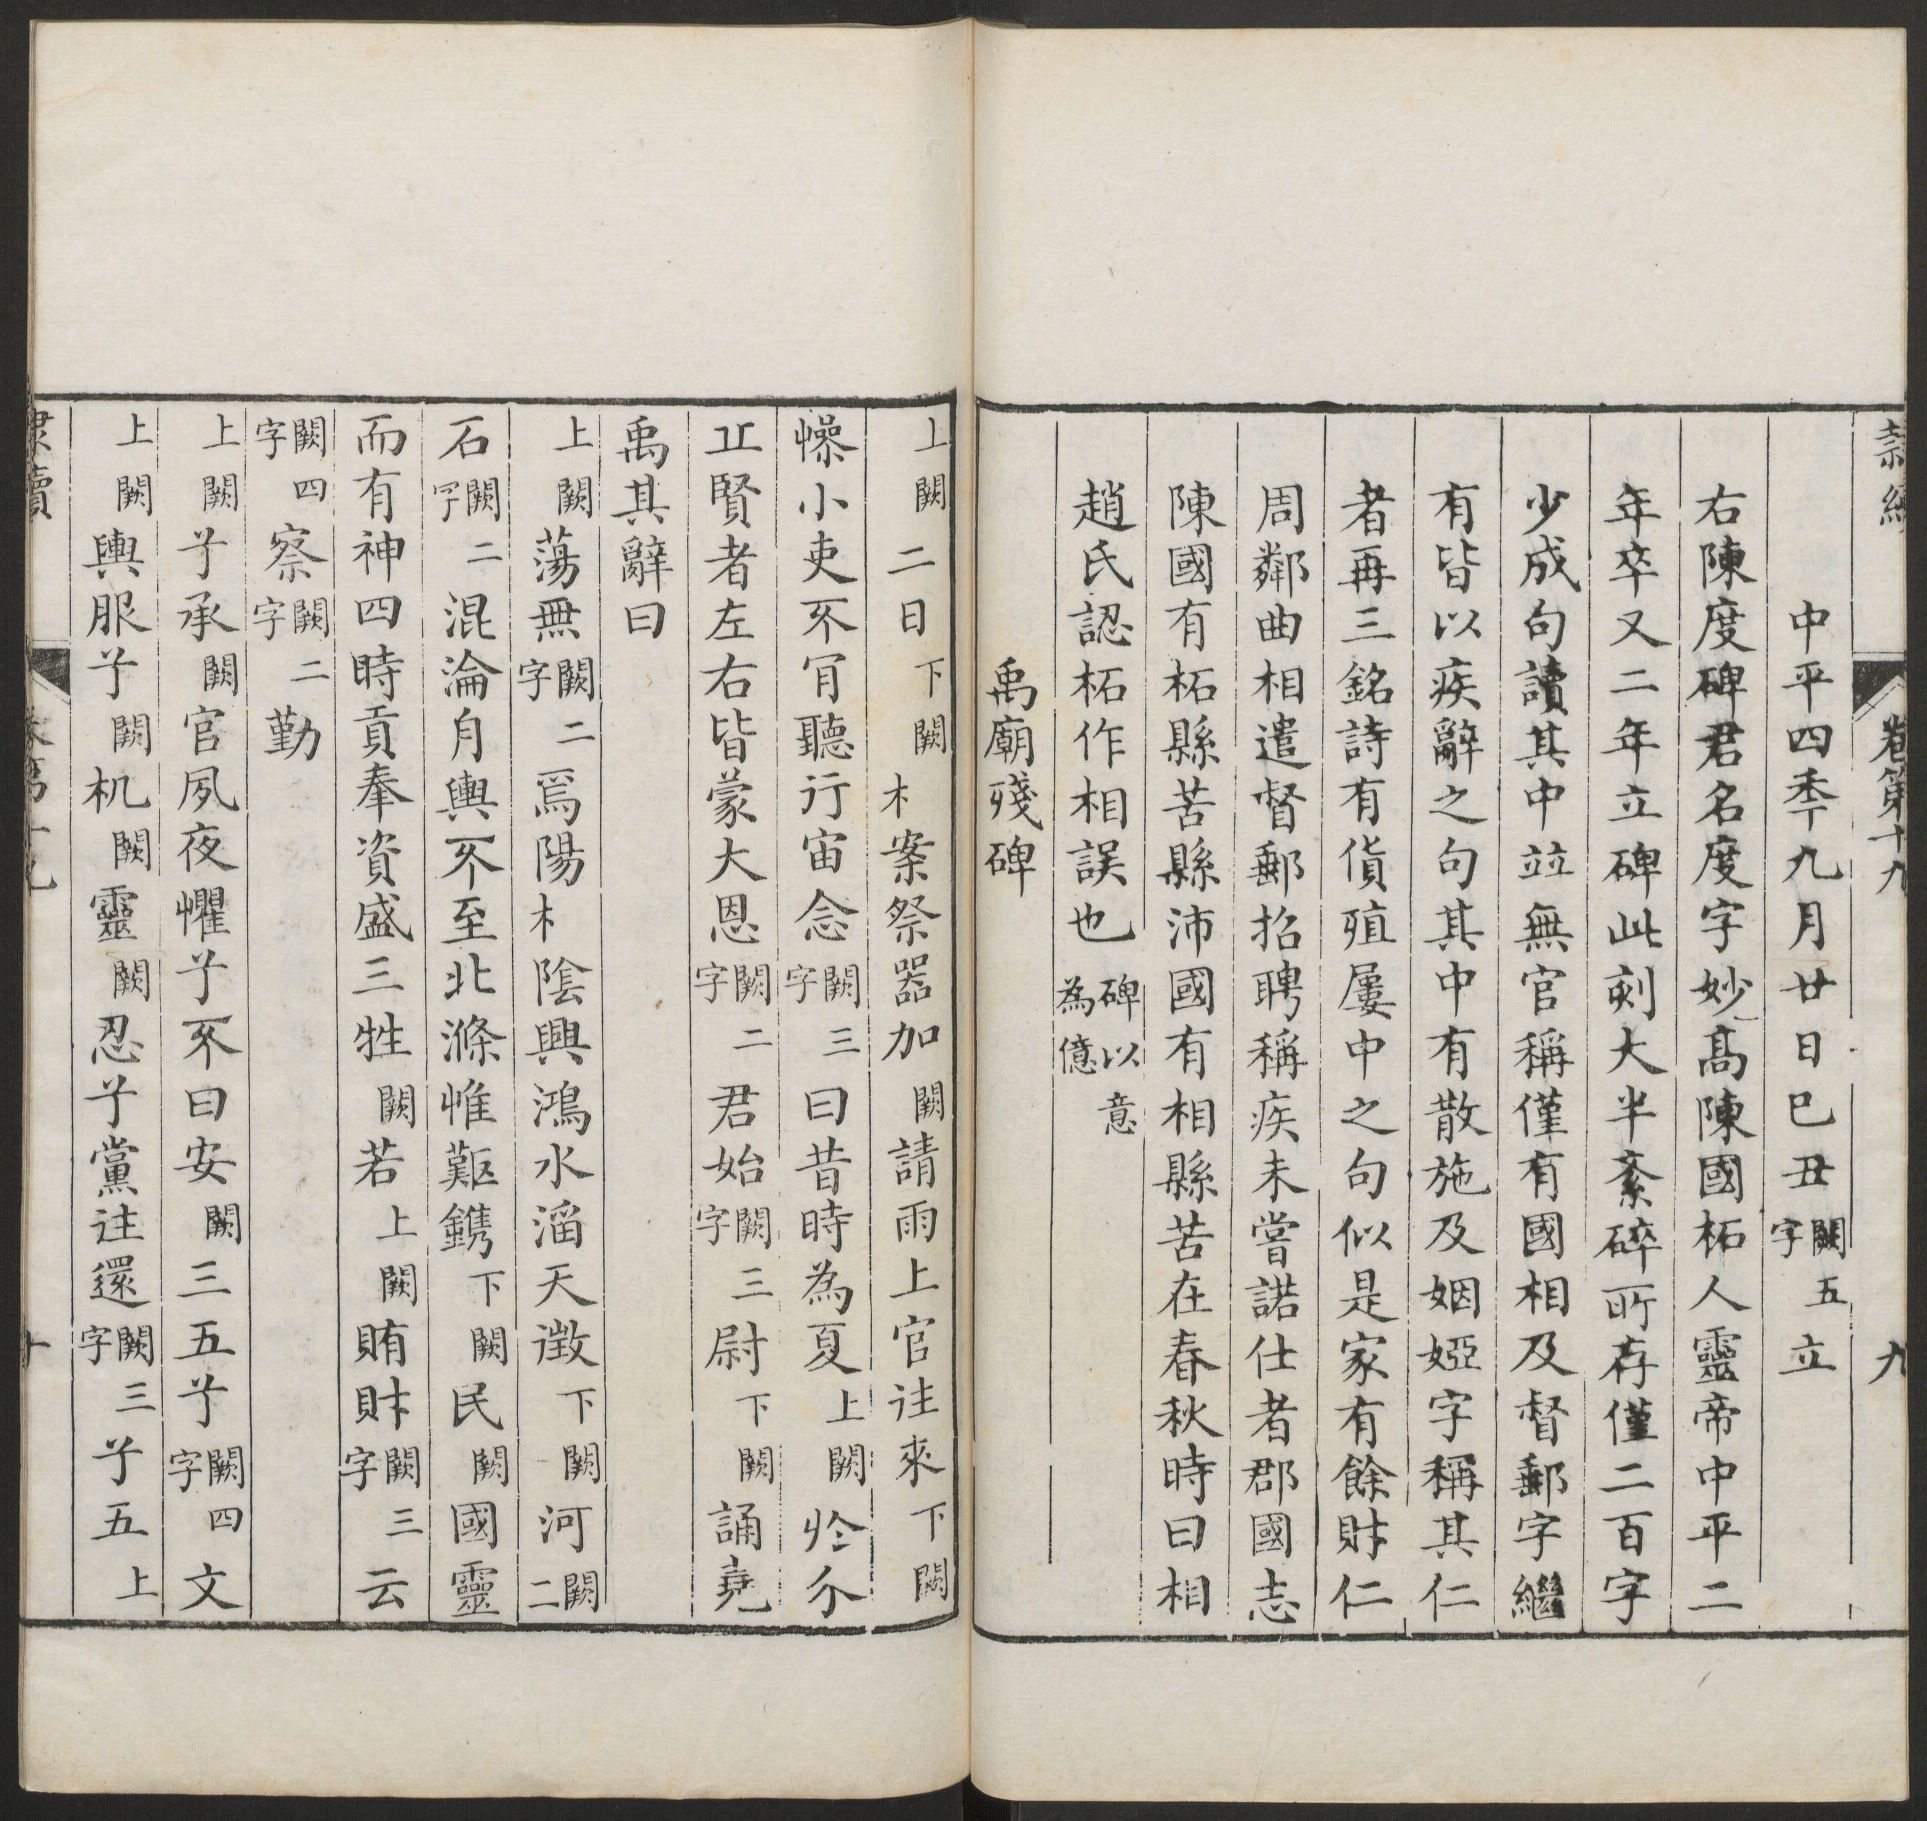 隸續
卷第十九
九
中平四秊九月廿日巳丑闕五字立
右陳度碑君名度字妙高陳國柘人靈帝中平二
年卒又二年立碑此刻大半紊碎所存僅二百字
少成句讀其中竝無官稱僅有國相及督郵字繼
有皆以疾辭之句其中有散施及姻婭字稱其仁
者再三銘詩有貨殖屢中之句似是家有餘財仁
周鄰曲相遣督郵招聘稱疾未嘗諾仕者郡國志
陳國有柘縣苦縣沛國有相縣苦在春秋時曰相
趙氏認柘作相誤也碑以意為億
禹廟殘碑
上闕二日下闕木案祭器加闕請雨上官徃來下闕
懆小吏不肎聽行宙念闕三字曰昔時為夏上闕忴尒
㱏賢者左右皆蒙大恩闕二字君始闕三字尉下闕誦堯
禹其辭曰
上闕蕩無闕二字焉陽木陰興鴻水滔天徴下闕河闕二
石闕二字混淪月輿不至北滌惟艱鐫下闕民闕國靈
而有神四時貢奉資盛三牲闕若上闕賄財闕三字云
闕四字察闕二字勤
上闕兮承闕官夙夜懼兮不曰安闕三五兮闕四字文
上闕輿服兮闕机闕靈闕忍兮黨徃還闕三字兮五上
隸續
卷第十九
十